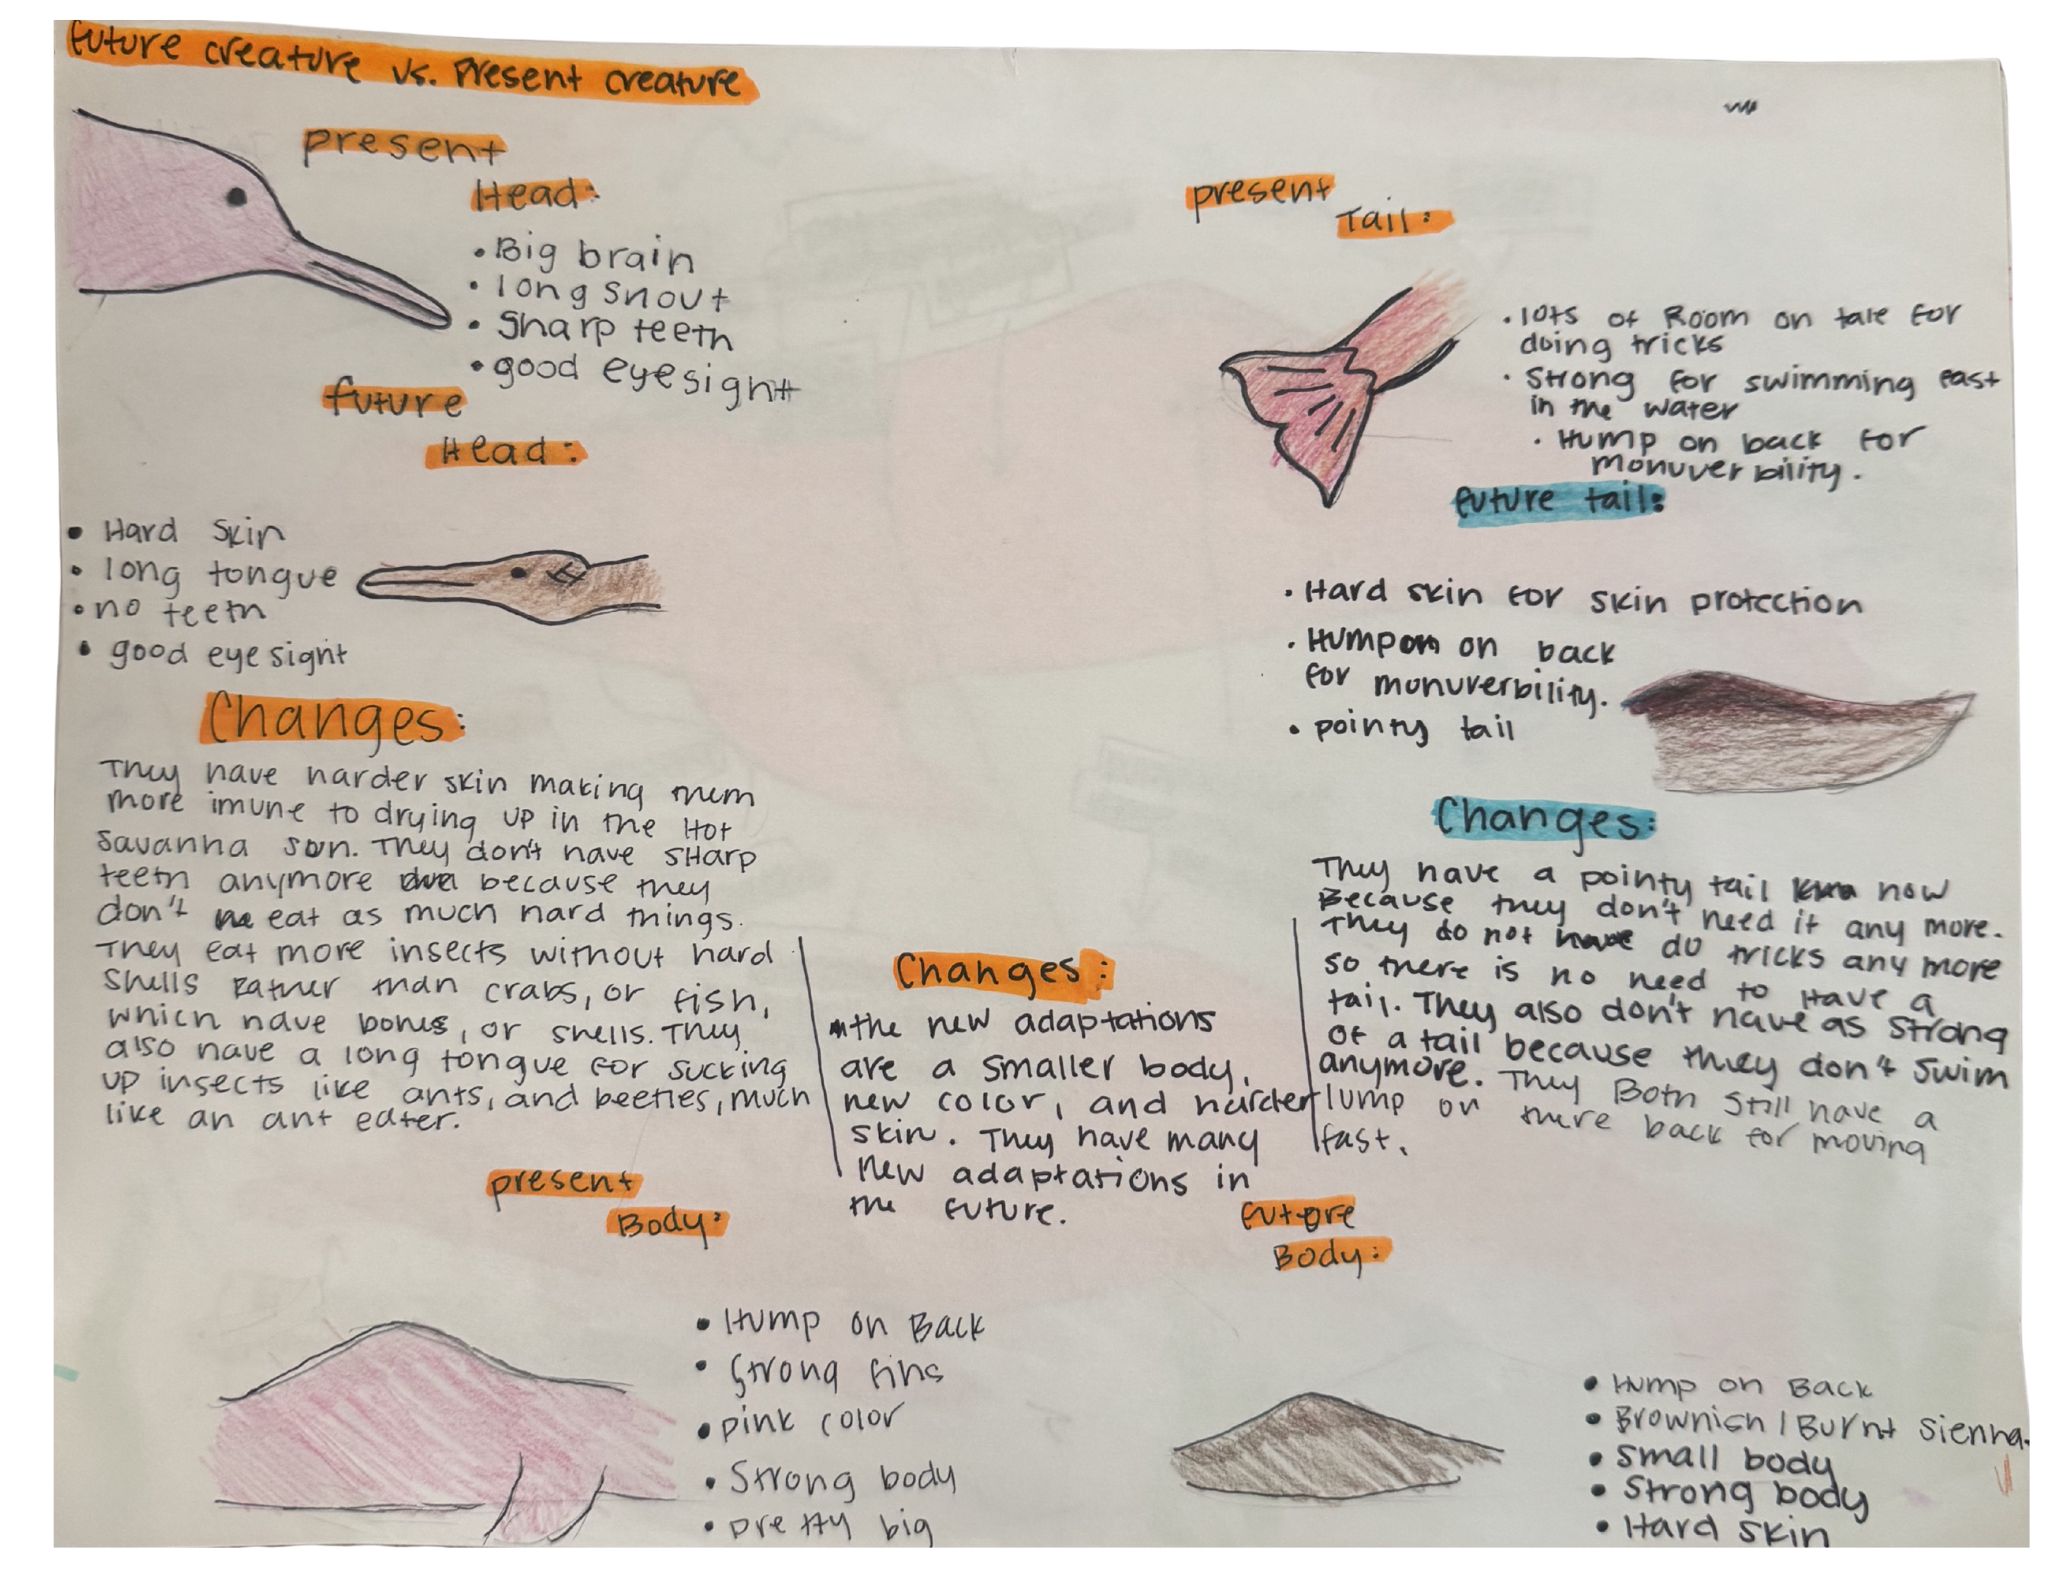 future creature vs. Present creature
present
Head:
• Big brain
• long snout
• Sharp teeth
• good eyesight
future
Head:
• Hard skin
• long tongue
• no teeth
• good eyesight
Changes:
They have harder skin making them
more imune to drying up in the Hot
savanna sun. They don't have sharp
teeth anymore because they
don't eat as much hard things.
They eat more insects without hard
shells Rather than crabs, or fish,
which have bones, or shells. They
also have a long tongue for sucking
up insects like ants, and beetles, much
like an ant eater.
present
Tail:
• lots of Room on tale for
doing tricks
• Strong for swimming fast
in the water
• Hump on back for
monuverbility.
future tail:
• Hard skin for skin protection
• Hump on back
for monuverbility.
• pointy tail
Changes:
They have a pointy tail now
Because they don't need it any more.
They do not do tricks any more
so there is no need to have a
tail. They also don't have as strong
of a tail because they don't swim
anymore. They Both still have a
lump on there back for moving
fast.
Changes:
the new adaptations
are a smaller body,
new color, and harder
skin. They have many
new adaptations in
the future.
present
Body:
• Hump on Back
• Strong fins
• pink color
• Strong body
• pretty big
future
Body:
• Hump on Back
• Brownish / Burnt sienna.
• Small body
• Strong body
• Hard skin